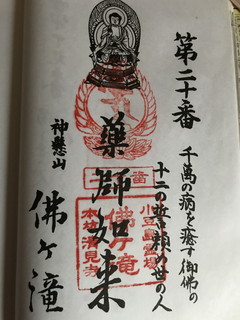 第二十番
千萬の病を癒す御佛の
十二の誓ひ頼め世の人
藥師如来
神懸山
佛ヶ滝
二十番
小豆島霊場
佛ヶ滝
本坊清見寺